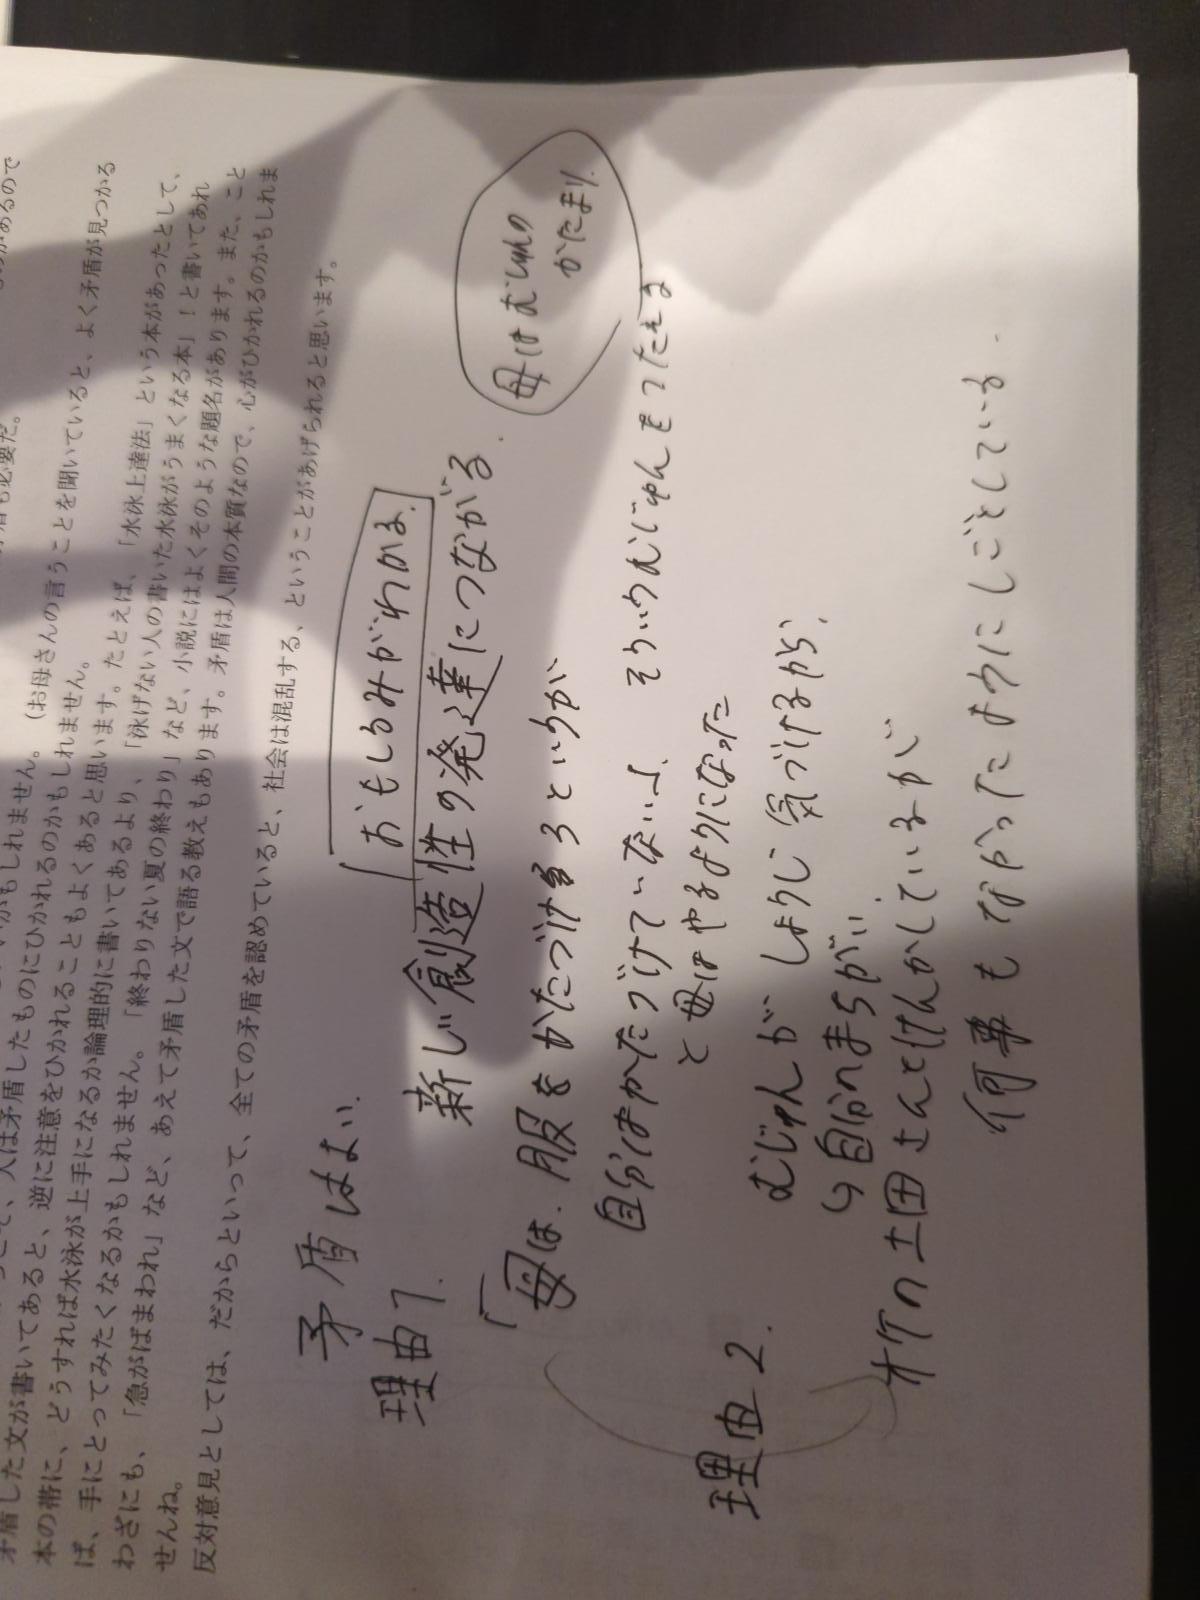 矛盾した文が書いてあると、逆に注意をひかれることもよくあると思います。たとえば、「水泳上達法」という本があったとして、
本の帯に、どうすれば水泳が上手になるか論理的に書いてあるより、「泳げない人の書いた水泳がうまくなる本」!と書いてあれ
ば、手にとってみたくなるかもしれません。「終わりない夏の終わり」など、小説にはよくそのような題名があります。また、こと
わざにも、「急がばまわれ」など、あえて矛盾した文で語る教えもあります。矛盾は人間の本質なので、心がひかれるのかもしれま
せんね。
反対意見としては、だからといって、全ての矛盾を認めていると、社会は混乱する、ということがあげられると思います。
矛盾はよい
理由1.
おもしろみがわかる.
新しい創造性の発達につながる.
母はむじゅんの
かたまり.
「母は.服をかたづけろというが
自分はかたづけていない」、そういうむじゅんをつたえる
と母はやるようになった
理由2.
むじゅんがしょうじ気づけるから.
自分のまちがい
オケの土田さんとけんかしているが
何事もなかったようにしごとしている.